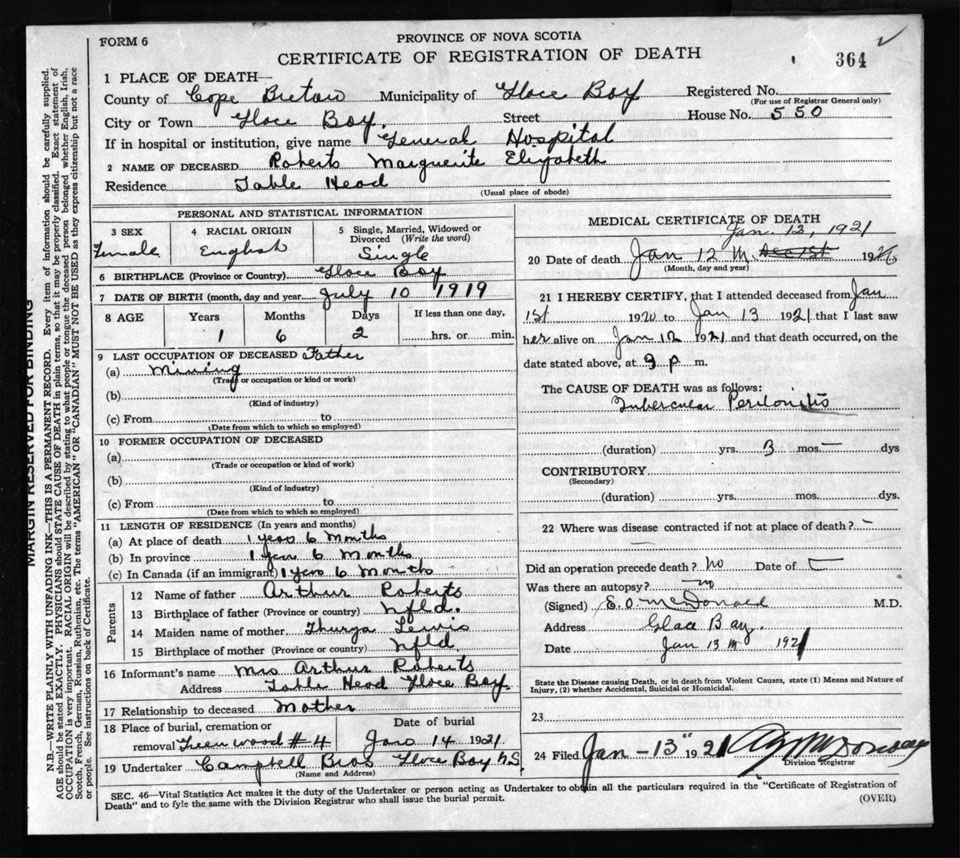 FORM 6
PROVINCE OF NOVA SCOTIA
CERTIFICATE OF REGISTRATION OF DEATH
364
1 PLACE OF DEATH—
County of Cape Breton Municipality of Glace Bay Registered No.
(For use of Registrar General only)
City or Town Glace Bay. Street House No. 550
If in hospital or institution, give name General Hospital
2 NAME OF DECEASED Roberts Marguerite Elizabeth
Residence Table Head
(Usual place of abode)
PERSONAL AND STATISTICAL INFORMATION
3 SEX Female
4 RACIAL ORIGIN English
5 Single, Married, Widowed or Divorced (Write the word) Single
6 BIRTHPLACE (Province or Country) Glace Bay
7 DATE OF BIRTH (month, day and year) July 10 1919
8 AGE Years Months Days If less than one day,
1 6 2 hrs. or min.
9 LAST OCCUPATION OF DECEASED Father
(a) Mining
(Trade or occupation or kind or work)
(b)
(Kind of industry)
(c) From to
(Date from which to which so employed)
10 FORMER OCCUPATION OF DECEASED
(a)
(Trade or occupation or kind of work)
(b)
(Kind of industry)
(c) From to
(Date from which to which so employed)
11 LENGTH OF RESIDENCE (In years and months)
(a) At place of death 1 year 6 months
(b) In province 1 year 6 months
(c) In Canada (if an immigrant) 1 year 6 months
Parents
12 Name of father Arthur Roberts
13 Birthplace of father (Province or country) Nfld.
14 Maiden name of mother Lewis
15 Birthplace of mother (Province or country) Nfld.
16 Informant's name Mrs Arthur Roberts
Address Table Head Glace Bay
17 Relationship to deceased Mother
18 Place of burial, cremation or Date of burial
removal Greenwood #4 Jan 14 1921
19 Undertaker Campbell Bros Glace Bay N.S
(Name and Address)
MEDICAL CERTIFICATE OF DEATH
Jan. 13, 1921
20 Date of death Jan 12 192
(Month, day and year)
21 I HEREBY CERTIFY, that I attended deceased from Jan
1st 1920 to Jan 13 1921 that I last saw
her alive on Jan 12 1921 and that death occurred, on the
date stated above, at 9 p m.
The CAUSE OF DEATH was as follows:
Tubercular Peritonitis
(duration) yrs. 3 mos — dys
CONTRIBUTORY
(Secondary)
(duration) yrs. mos. dys.
22 Where was disease contracted if not at place of death? —
Did an operation precede death? No Date of
Was there an autopsy? no
(Signed) E. O. McDonald M.D.
Address Glace Bay.
Date Jan 13 1921
State the Disease causing Death, or in death from Violent Causes, state (1) Means and Nature of
Injury, (2) whether Accidental, Suicidal or Homicidal.
23
24 Filed Jan — 13" 1921
Division Registrar
SEC. 46—Vital Statistics Act makes it the duty of the Undertaker or person acting as Undertaker to obtain all the particulars required in the "Certificate of Registration of
Death" and to fyle the same with the Division Registrar who shall issue the burial permit.
(OVER)
MARGIN RESERVED FOR BINDING
N.B.—WRITE PLAINLY WITH UNFADING INK—THIS IS A PERMANENT RECORD. Every item of information should be carefully supplied.
AGE should be stated EXACTLY. PHYSICIANS should STATE CAUSE OF DEATH in plain terms, so that it may be properly classified. Exact statement of
OCCUPATION is very important. RACIAL ORIGIN will be described by stating to what people or tongue the deceased person belonged whether English, Irish,
Scotch, French, German, Russian, Ruthenian, etc. The terms "AMERICAN" OR "CANADIAN" MUST NOT BE USED as they express citizenship but not a race
or people. See instructions on back of Certificate.